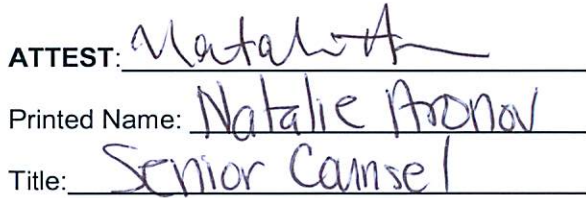 ATTEST:
Printed Name: Natalie Aronov
Title: Senior Counsel